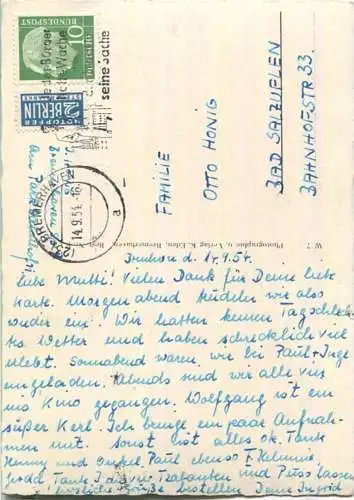 DEUTSCHE
BUNDESPOST
10
seine Sache
NOTOPFER
2 BERLIN
STEUERMARKE
BREMERHAVEN
14.9.54.-16
a
FAMILIE
OTTO HONIG
BAD SALZUFLEN
BAHNHOFSTR 33.
Photographie u. Verlag K. Eden, Bremerhaven
d. 14.9.54.
liebe Mutti! Vielen Dank für Deine liebe
Karte. Morgen abend trudeln wir also
wieder ein. Wir hatten keinen Tag schlech-
tes Wetter und haben schrecklich viel
erlebt. Sonnabend waren wir bei Paul + Inge
eingeladen. Abends sind wir alle vier
ins Kino gegangen. Wolfgang ist ein
süßer Kerl. Ich bringe ein paar Aufnah-
men mit. Sonst ist alles ok. Tante
Henny und Onkel Paul ebenso
Tante und
herzliche Grüße bestellen. Deine Ingrid